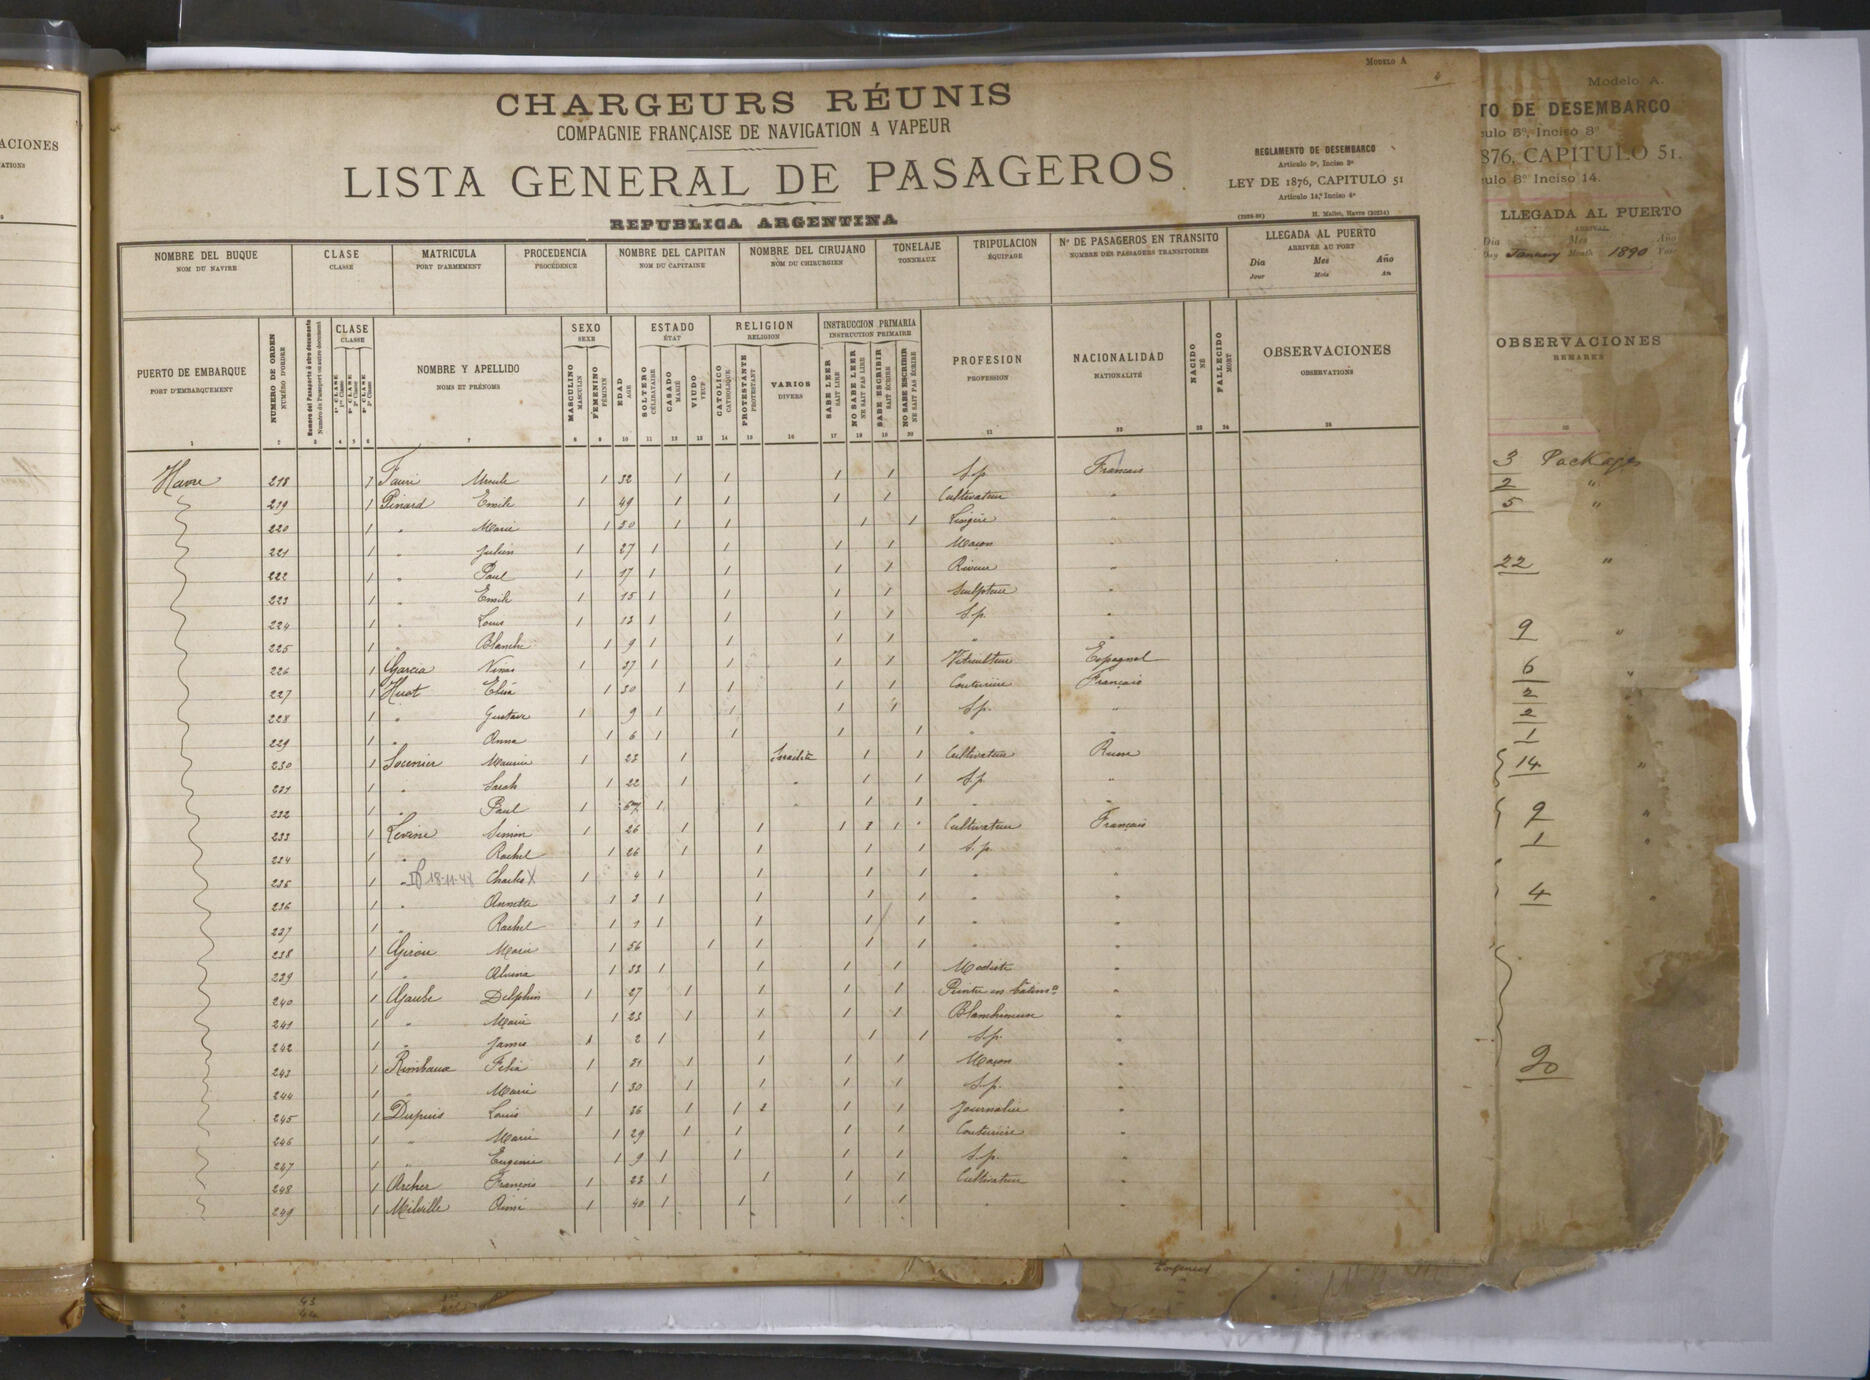 ACIONES
ATIONS
MODELO A
CHARGEURS RÉUNIS
COMPAGNIE FRANÇAISE DE NAVIGATION A VAPEUR
LISTA GENERAL DE PASAGEROS
REPUBLICA ARGENTINA
REGLAMENTO DE DESEMBARCO
Artículo 5º, Inciso 3º
LEY DE 1876, CAPITULO 51
NOMBRE DEL BUQUE CLASE MATRICULA PROCEDENCIA NOMBRE DEL CAPITAN NOMBRE DEL CIRUJANO TONELAJE TRIPULACION Nº DE PASAGEROS EN TRANSITO LLEGADA AL PUERTO
NOM DU NAVIRE CLASSE PORT D'ARMEMENT PROCÉDENCE NOM DU CAPITAINE NOM DU CHIRURGIEN TONNEAUX ÉQUIPAGE NOMBRE DES PASSAGERS TRANSITOIRES ARRIVÉE AU PORT
Dia Mes Año
Jour Mois An
PUERTO DE EMBARQUE
PORT D'EMBARQUEMENT
NUMERO DE ORDEN
NUMÉRO D'ORDRE
CLASE
CLASSE
NOMBRE Y APELLIDO
NOMS ET PRÉNOMS
SEXO
SEXE
MASCULINO
MASCULIN
FEMENINO
FÉMININ
EDAD
AGE
ESTADO
ÉTAT
SOLTERO
CÉLIBATAIRE
CASADO
MARIÉ
VIUDO
VEUF
RELIGION
RELIGION
CATOLICO
CATHOLIQUE
PROTESTANTE
PROTESTANT
VARIOS
DIVERS
INSTRUCCION PRIMARIA
INSTRUCTION PRIMAIRE
SABE LEER
SAIT LIRE
NO SABE LEER
NE SAIT PAS LIRE
SABE ESCRIBIR
SAIT ÉCRIRE
NO SABE ESCRIBIR
NE SAIT PAS ÉCRIRE
PROFESION
PROFESSION
NACIONALIDAD
NATIONALITÉ
NACIDO
NÉ
FALLECIDO
MORT
OBSERVACIONES
OBSERVATIONS
Havre 218 1 Ursule 1 32 1 1 1 1 S.p. Francais
219 1 Pinard Emile 1 49 1 1 1 1 Cultivateur "
220 1 " Marie 1 50 1 1 1 1 Lingère "
221 1 " Julien 1 27 1 1 1 1 Maçon "
222 1 " Paul 1 17 1 1 1 1 "
223 1 " Emile 1 15 1 1 1 1 Sculpteur "
224 1 " Louis 1 13 1 1 1 1 S.p. "
225 1 " Blanche 1 9 1 1 1 1 " "
226 1 Garcia 1 37 1 1 1 1 Viticulteur Espagnol
227 1 Huot Elisa 1 30 1 1 1 1 Couturière Français
228 1 " Gustave 1 9 1 1 1 1 S.p. "
229 1 " Anna 1 6 1 1 1 1 " "
230 1 Maurice 1 23 1 Israélite 1 1 Cultivateur Russe
231 1 " Sarah 1 22 1 " 1 1 S.p. "
232 1 " Paul 1 1 " 1 1 " "
233 1 Levine Simon 1 26 1 1 1 1 Cultivateur Français
234 1 " Rachel 1 26 1 1 1 1 S.p. "
235 1 " 18-11-48 Charles X 1 4 1 1 1 1 " "
236 1 " Annette 1 3 1 1 1 1 " "
237 1 " Rachel 1 1 1 1 1 1 " "
238 1 Giron Marie 1 56 1 1 1 1 " "
239 1 " 1 33 1 1 1 1 Modiste "
240 1 Gaube Delphin 1 27 1 1 1 1 Peintre en "
241 1 " Marie 1 23 1 1 1 1 Blanchisseuse "
242 1 " James 1 2 1 1 1 1 S.p. "
243 1 Rimbaux Felix 1 31 1 1 1 1 Maçon "
244 1 " Marie 1 30 1 1 1 1 S.p. "
245 1 Dupuis Louis 1 36 1 1 1 1 Journalier "
246 1 " Marie 1 29 1 1 1 1 Couturière "
247 1 " Eugenie 1 9 1 1 1 1 S.p. "
248 1 Archer François 1 23 1 1 1 1 Cultivateur "
249 1 Milville Aimé 1 40 1 1 1 1 " "
Modelo A.
TO DE DESEMBARCO
culo 5º, Inciso 3º
876, CAPITULO 51.
culo 8º Inciso 14.
LLEGADA AL PUERTO
ARRIVAL
Dia Mes Año
Day January Month 1890 Year
OBSERVACIONES
REMARKS
3 Packages
2 "
5 "
22 "
9 "
6 "
2
2
1
14 "
9 "
1
4 "
20